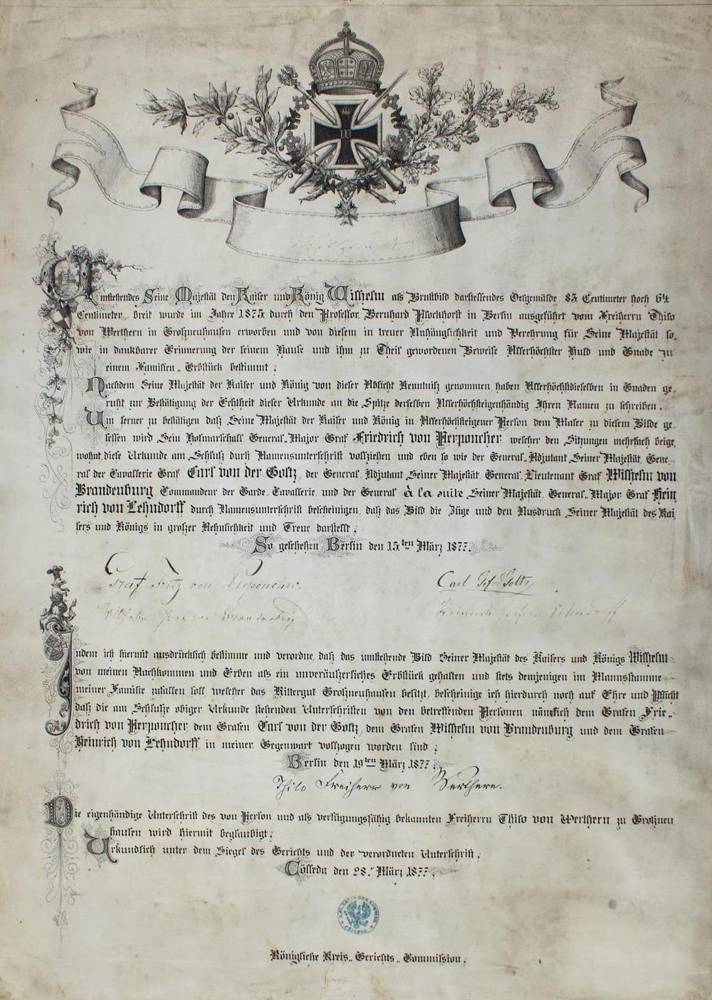 Umstehendes Seine Majestät den Kaiser und König Wilhelm als Brustbild darstellendes Oelgemälde 85 Centimeter hoch 64
Centimeter breit wurde im Jahre 1875 durch den Professor Bernhard Plockhorst in Berlin ausgeführt vom Freiherrn Thilo
von Werthern in Großneuhausen erworben und von diesem in treuer Anhänglichkeit und Verehrung für Seine Majestät so„
wie in dankbarer Erinnerung der seinem Hause und ihm zu Theil gewordenen Beweise Allerhöchster Huld und Gnade zu
einem Familien„Erbstück bestimmt.
Nachdem Seine Majestät der Kaiser und König von dieser Absicht Kenntniß genommen haben Allerhöchstdieselben in Gnaden ge„
ruht zur Bestätigung der Echtheit dieser Urkunde an die Spitze derselben Allerhöchsteigenhändig Ihren Namen zu schreiben.
Um ferner zu bestätigen daß Seine Majestät der Kaiser und König in Allerhöchsteigener Person dem Maler zu diesem Bilde ge„
sessen wird Sein Hofmarschall General„Major Graf Friedrich von Perponcher welcher den Sitzungen mehrfach beige„
wohnt diese Urkunde am Schluß durch Namensunterschrift vollziehen und eben so wie der General„Adjutant Seiner Majestät, Gene„
ral der Cavallerie Graf Carl von der Goltz, der General„Adjutant Seiner Majestät General„Lieutenant Graf Wilhelm von
Brandenburg Commandeur der Garde„Cavallerie, und der General à la suite Seiner Majestät, General„Major Graf Hein„
rich von Lehndorff durch Namensunterschrift bescheinigen, daß das Bild die Züge und den Ausdruck Seiner Majestät des Kai„
sers und Königs in großer Aehnlichkeit und Treue darstellt.
So geschehen Berlin den 15ten März 1877.
Graf Fritz von Perponcher. Carl Gf. v. Goltz
Wilhelm Graf von Brandenburg Heinrich Lehndorff
Indem ich hiermit ausdrücklich bestimme und verordne daß das umstehende Bild Seiner Majestät des Kaisers und Königs Wilhelm
von meinen Nachkommen und Erben als ein unveräußerliches Erbstück gehalten und stets demjenigen im Mannsstamme
meiner Familie zufallen soll welcher das Rittergut Großneuhausen besitzt, bescheinige ich hierdurch noch auf Ehre und Pflicht
daß die am Schlusse obiger Urkunde stehenden Unterschriften von den betreffenden Personen nämlich dem Grafen Frie„
drich von Perponcher, dem Grafen Carl von der Goltz, dem Grafen Wilhelm von Brandenburg und dem Grafen
Heinrich von Lehndorff in meiner Gegenwart vollzogen worden sind.
Berlin den 19ten März 1877.
Thilo Freiherr von Werthern.
Die eigenhändige Unterschrift des von Person und als verfügungsfähig bekannten Freiherrn Thilo von Werthern zu Großneu
hausen wird hiermit beglaubigt.
Urkundlich unter dem Siegel des Gerichts und der verordneten Unterschrift.
Cölleda den 28. März 1877.
Königliche Kreis„Gerichts„Commission.